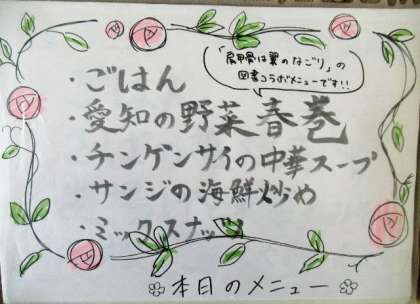 「肩甲骨は翼のなごり」の
図書コラボメニューです!!
・ごはん
・愛知の野菜春巻
・チンゲンサイの中華スープ
・サンジの海鮮炒め
・ミックスナッツ
本日のメニュー